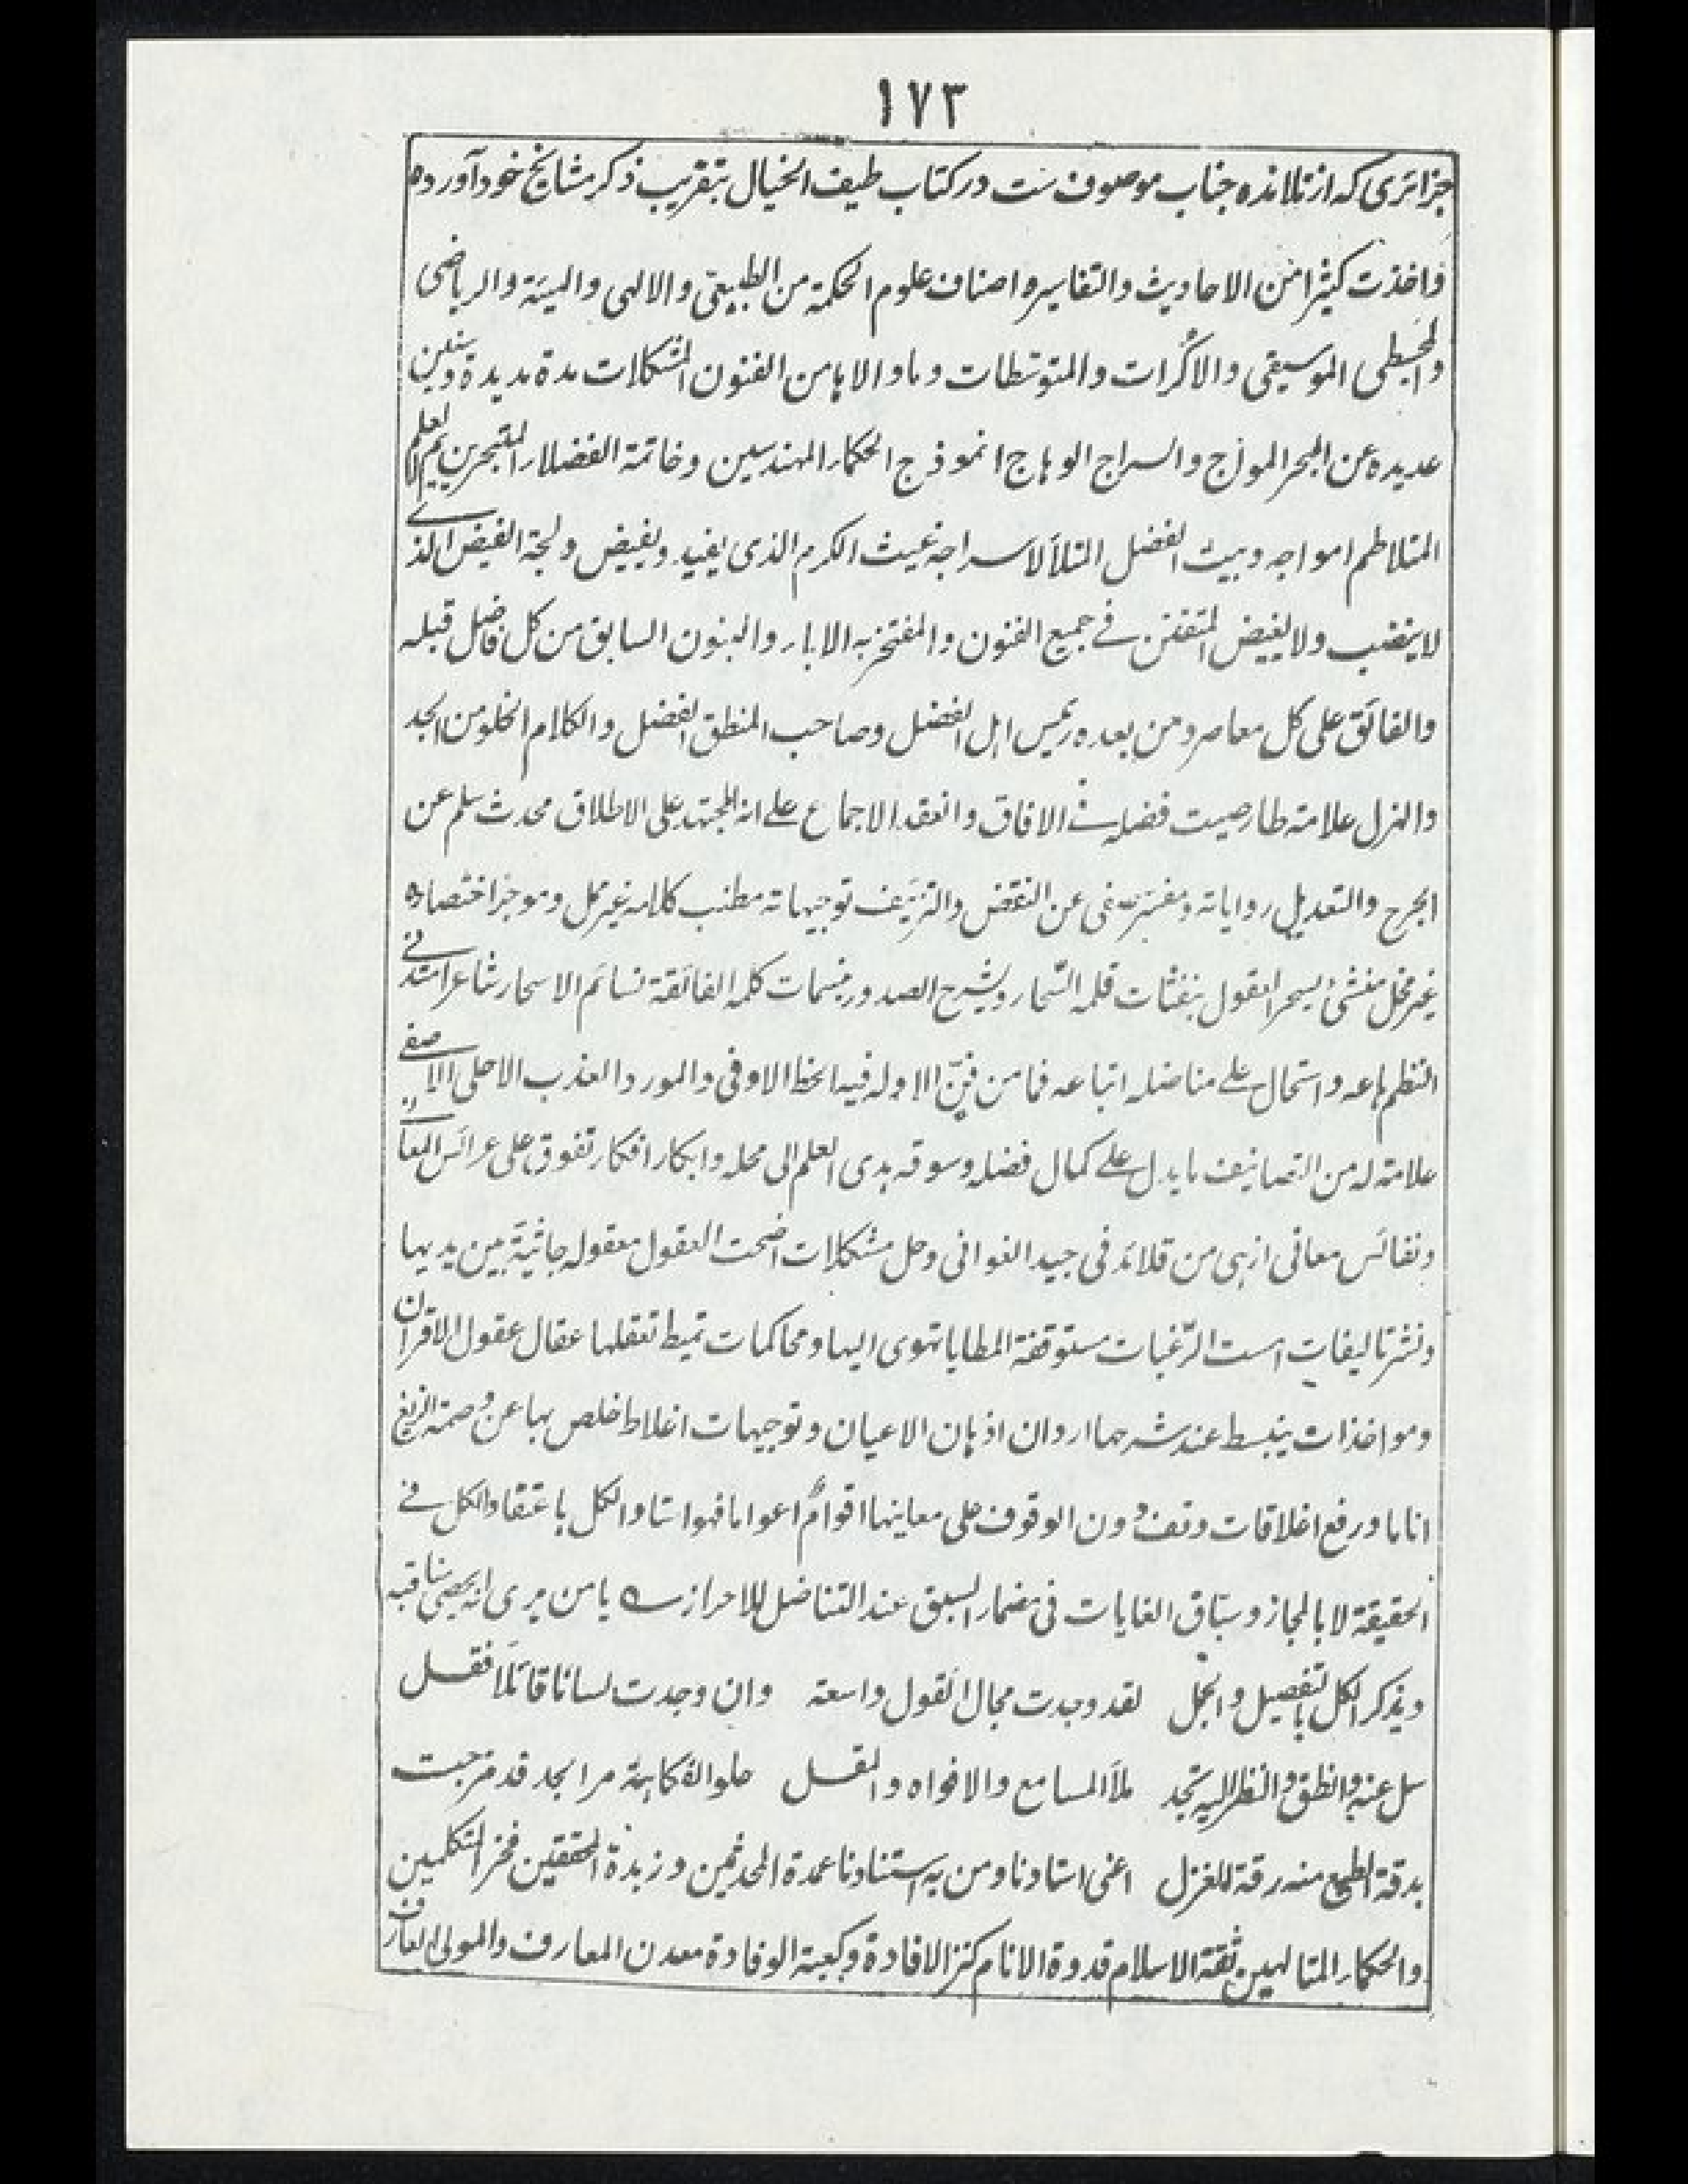 ١٧٣
جزائری که از تلامذه جناب موصوف ست در کتاب طیف الخیال بتقریب ذکر مشایخ خود آورده
واخذت کثیرا من الاحادیث والتفاسیر واصناف علوم الحکمة من الطبیعی والالهی والهیئة والریاضی
والمجسطی الموسیقی والاکرات والمتوسطات وما والاها من الفنون المشکلات مدة مدیدة وسنین
عدیده عن البحر المواج والسراج الوهاج انموذج الحکماء المهندسین وخاتمة الفضلاء المتبحرین یم العلم
المتلاطم امواجه وبیت الفضل المتلألأ سراجه غیث الکرم الذی یفید ویفیض ولجة الفیض الذے
لا ینضب ولا یغیض المتفنن فے جمیع الفنون والمفتخر به الاباء والبنون السابق من کل فاضل قبله
والفائق علی کل معاصر ومن بعده رئیس اهل الفضل وصاحب المنطق الفضل والکلام الخلو من الجد
والهزل علامة طار صیت فضله فے الافاق وانعقد الاجماع علے انه المجتهد علی الاطلاق محدث سلم عن
الجرح والتعدیل روایاته ومفسر غنی عن النقض والتزییف توجیهاته مطنب کلامه غیر ممل وموجز اختصاره
غیر مخل منشئ یسحر العقول بنفثات قلمه السحار ویشرح الصدور بنسمات کلمه الفائقة نسائم الاسحار شاعر امتد فے
النظم باعه واستحال علے مناضله اتباعه فما من فن الا وله فیه الحظ الاوفی والمورد العذب الاحلی الاصفے
علامة له من التصانیف ما یدل علے کمال فضله وسوقه هدی العلم الی محله وابکار افکار تفوق علی عرائس المعا
ونفائس معانی ازهی من قلائد فی جید الغوانی وحل مشکلات اضحت العقول معقوله جاثیة بین یدیها
ونشر تالیفات امست الرغبات مستوقفة المطایا تهوی الیها ومحاکمات تمیط تعقلها عقال عقول الاقران
ومواخذات ینبسط عند شرحها اردان اذهان الاعیان وتوجیهات اغلاط خلص بها عن وصمة الزیغ
اناما ورفع اغلاقات وقف دون الوقوف علی معاینها اقوام اعواما فهو استاد الکل باعتقاد الکل فے
الحقیقة لا بالمجاز وسباق الغایات فی مضمار السبق عند التناضل للاحراز ے یا من یری انه یحصی مناقبه
ویذکر الکل بالتفصیل والجمل لقد وجدت مجال القول واسعة وان وجدت لسانا قائلا فقل
سل عنه وانطق وانظر الیه تجد ملأ المسامع والافواه والمقل حلو الفکاهة مر الجد قد مزجت
بدقة الطبع منه رقة للغزل اعنی استادنا ومن به استنادنا عمدة المحدثین وزبدة المحققین فخر المتکلمین
والحکماء المتالهین ثقة الاسلام قدوة الانام کنز الافادة وکعبة الوفادة معدن المعارف والمولی العارف